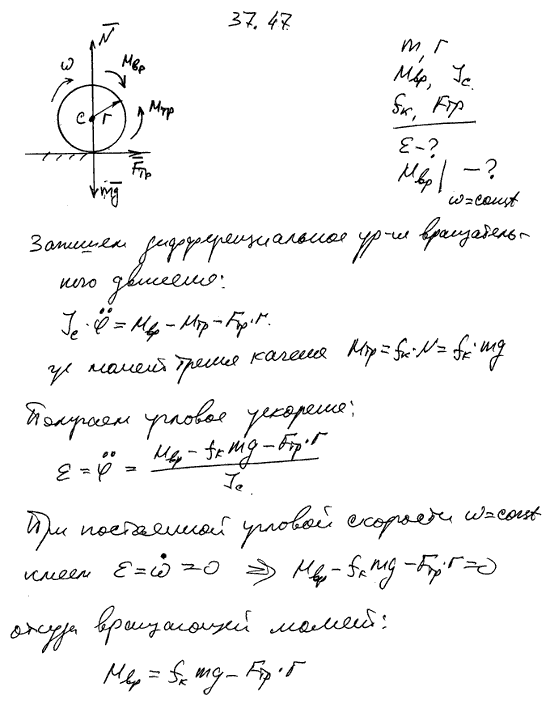 37.47.
N̄
ω
Mвр
Mтр
C
r
F̄тр
m̄g
m, r
Mвр, Jc
fк, Fтр
ε-?
Mвр| -?
ω=const
Запишем дифференциальное ур-е вращатель-
ного движения:
Jc·φ̈ = Mвр - Mтр - Fтр·r.
где момент трения качения Mтр = fк·N = fк·mg
Получаем угловое ускорение:
ε = φ̈ = (Mвр - fк mg - Fтр·r) / Jc
При постоянной угловой скорости ω=const
имеем ε = ω̇ = 0 ⇒ Mвр - fк mg - Fтр·r = 0
откуда вращающий момент:
Mвр = fк mg - Fтр·r